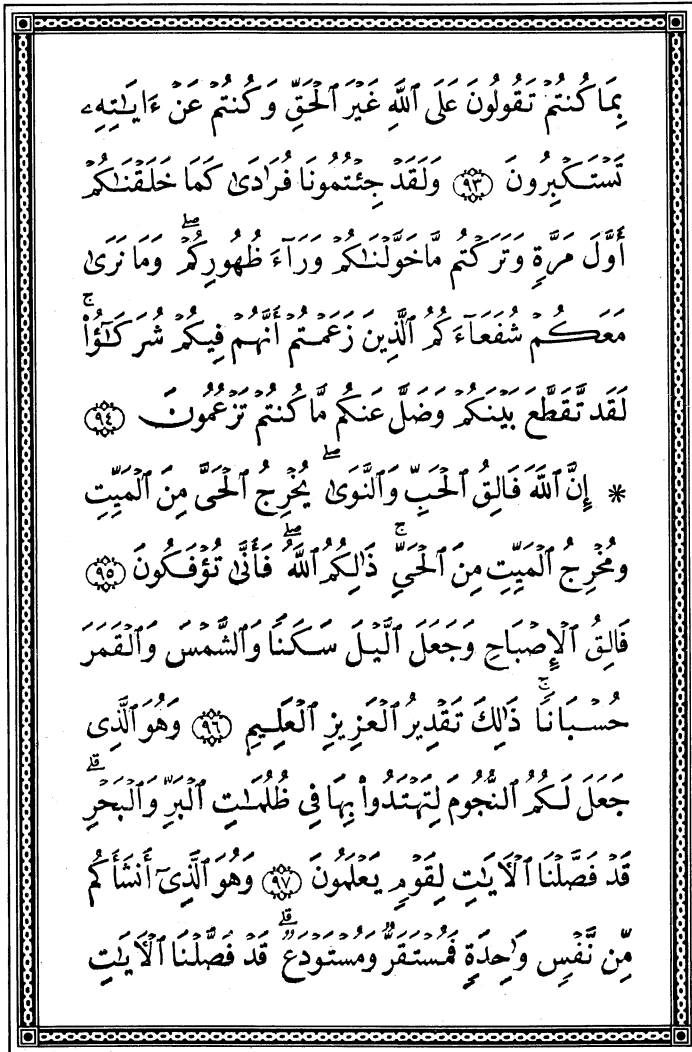 بِمَا كُنتُمۡ تَقُولُونَ عَلَى ٱللَّهِ غَيۡرَ ٱلۡحَقِّ وَكُنتُمۡ عَنۡ ءَايَٰتِهِۦ
تَسۡتَكۡبِرُونَ ﴿٩٣﴾ وَلَقَدۡ جِئۡتُمُونَا فُرَٰدَىٰ كَمَا خَلَقۡنَٰكُمۡ
أَوَّلَ مَرَّةٖ وَتَرَكۡتُم مَّا خَوَّلۡنَٰكُمۡ وَرَآءَ ظُهُورِكُمۡۖ وَمَا نَرَىٰ
مَعَكُمۡ شُفَعَآءَكُمُ ٱلَّذِينَ زَعَمۡتُمۡ أَنَّهُمۡ فِيكُمۡ شُرَكَٰٓؤُاْۚ
لَقَد تَّقَطَّعَ بَيۡنَكُمۡ وَضَلَّ عَنكُم مَّا كُنتُمۡ تَزۡعُمُونَ ﴿٩٤﴾
* إِنَّ ٱللَّهَ فَالِقُ ٱلۡحَبِّ وَٱلنَّوَىٰۖ يُخۡرِجُ ٱلۡحَيَّ مِنَ ٱلۡمَيِّتِ
وَمُخۡرِجُ ٱلۡمَيِّتِ مِنَ ٱلۡحَيِّۚ ذَٰلِكُمُ ٱللَّهُۖ فَأَنَّىٰ تُؤۡفَكُونَ ﴿٩٥﴾
فَالِقُ ٱلۡإِصۡبَاحِ وَجَعَلَ ٱلَّيۡلَ سَكَنٗا وَٱلشَّمۡسَ وَٱلۡقَمَرَ
حُسۡبَانٗاۚ ذَٰلِكَ تَقۡدِيرُ ٱلۡعَزِيزِ ٱلۡعَلِيمِ ﴿٩٦﴾ وَهُوَ ٱلَّذِي
جَعَلَ لَكُمُ ٱلنُّجُومَ لِتَهۡتَدُواْ بِهَا فِي ظُلُمَٰتِ ٱلۡبَرِّ وَٱلۡبَحۡرِۗ
قَدۡ فَصَّلۡنَا ٱلۡأٓيَٰتِ لِقَوۡمٖ يَعۡلَمُونَ ﴿٩٧﴾ وَهُوَ ٱلَّذِيٓ أَنشَأَكُم
مِّن نَّفۡسٖ وَٰحِدَةٖ فَمُسۡتَقَرّٞ وَمُسۡتَوۡدَعٞۗ قَدۡ فَصَّلۡنَا ٱلۡأٓيَٰتِ